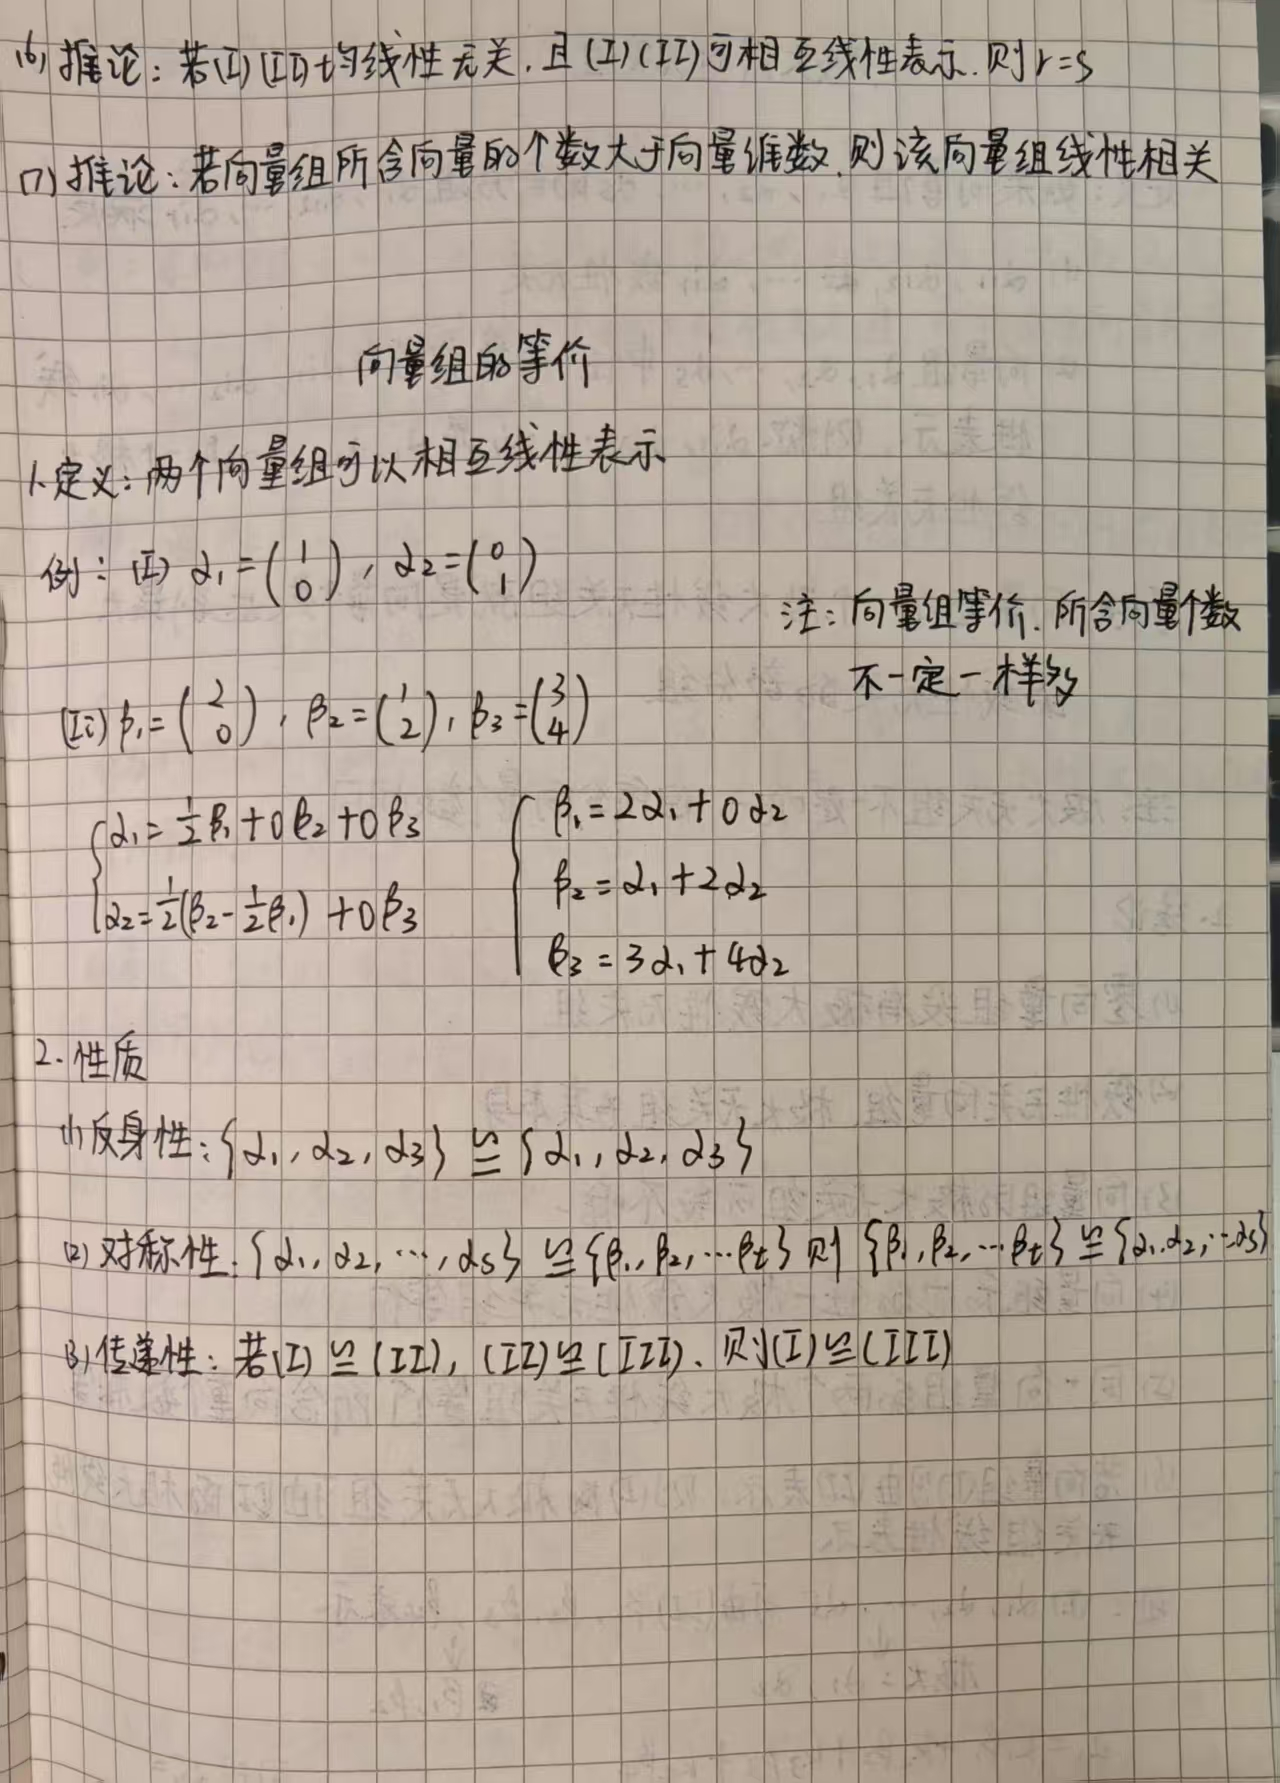 (6) 推论：若(I)(II)均线性无关，且(I)(II)可相互线性表示，则r=s
(7) 推论：若向量组所含向量的个数大于向量维数，则该向量组线性相关
向量组的等价
1. 定义：两个向量组可以相互线性表示
例：(I) α₁=(1 0)，α₂=(0 1)
注：向量组等价，所含向量个数
不一定一样多
(II) β₁=(2 0)，β₂=(1 2)，β₃=(3 4)
α₁=½β₁+0β₂+0β₃
α₂=½(β₂-½β₁)+0β₃
β₁=2α₁+0α₂
β₂=α₁+2α₂
β₃=3α₁+4α₂
2. 性质
(1) 反身性：{α₁，α₂，α₃}≌{α₁，α₂，α₃}
(2) 对称性：{α₁，α₂，…，αs}≌{β₁，β₂，…βt}则{β₁，β₂，…βt}≌{α₁，α₂，…αs}
(3) 传递性：若(I)≌(II)，(II)≌(III)、则(I)≌(III)